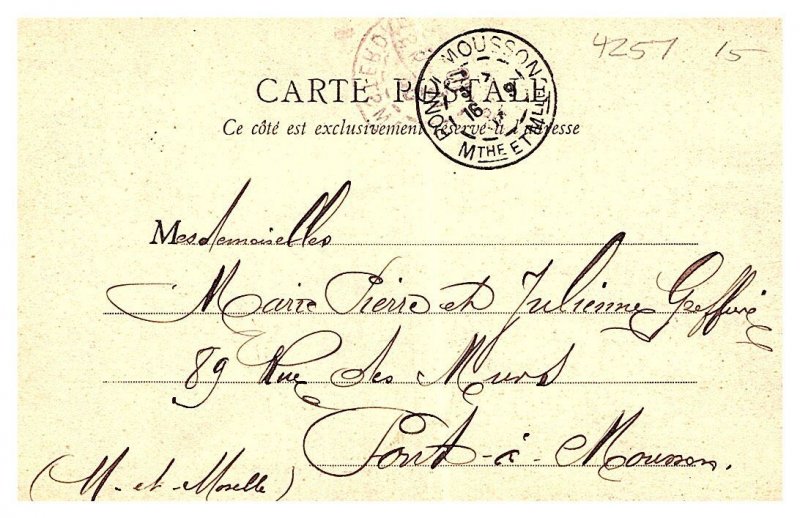 4257 15
CARTE POSTALE
Ce côté est exclusivement réservé à l'adresse
PONT-À-MOUSSON
MTHE ET MLLE
16
Mesdemoiselles
Marie Pierre et Julienne
89 Rue des Murs
Pont-à-Mousson.
(M-et-Moselle)